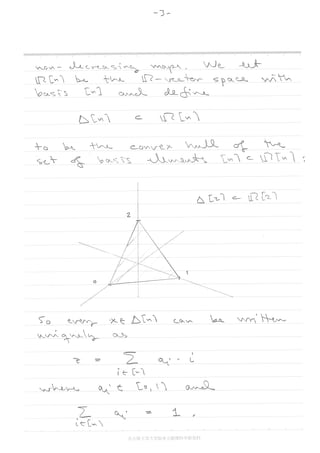 -3-
non-decreasing maps. We let
ℝ[n] be the ℝ-vector space with
basis [n] and define
Δ[n] ⊂ ℝ[n]
to be the convex hull of the
set of basis elements [n] ⊂ ℝ[n]:
2
Δ[2] ⊂ ℝ[2]
0
1
So every x ∈ Δ[n] can be written
uniquely as
x = ∑ aᵢ · i
i ∈ [n]
where aᵢ ∈ [0,1] and
∑ aᵢ = 1.
i ∈ [n]